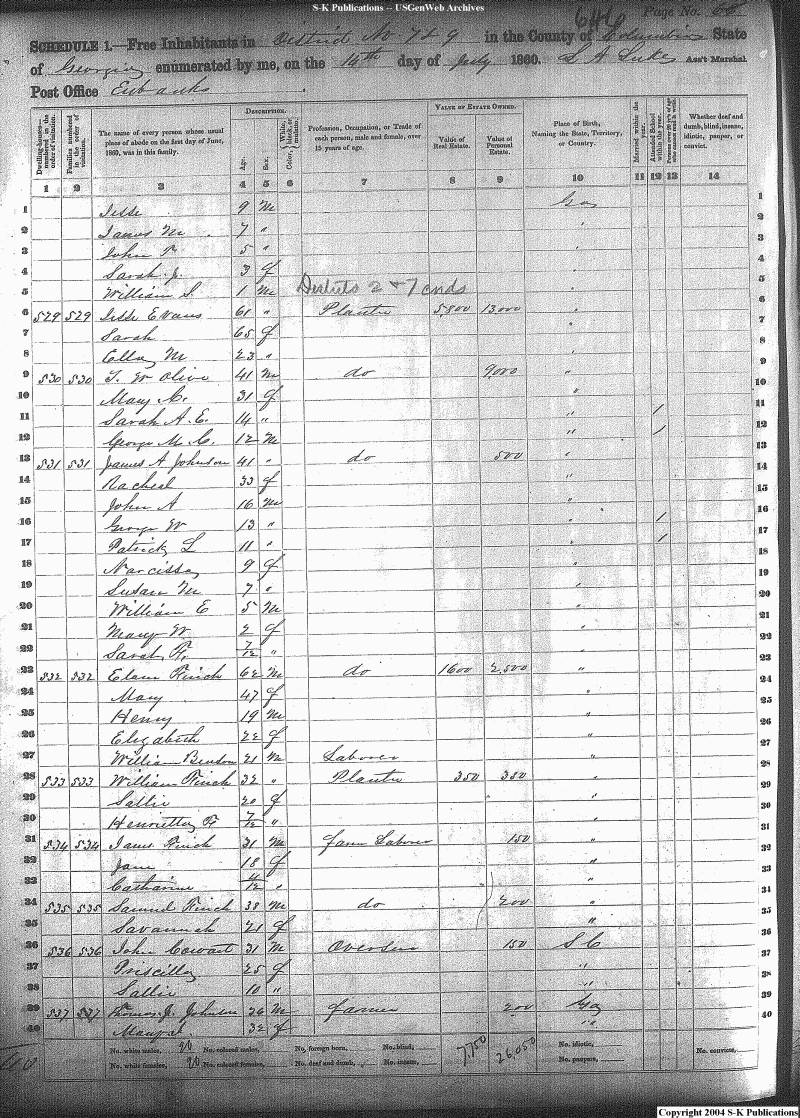 S-K Publications -- USGenWeb Archives
Page No. 68
646
SCHEDULE 1.—Free Inhabitants in District No 729 in the County of Columbia State
of Georgia enumerated by me, on the 14th day of July 1860. Ass't Marshal
Post Office Eubanks
Dwelling-houses—numbered in the order of visitation.
Families numbered in the order of visitation.
The name of every person whose usual place of abode on the first day of June, 1860, was in this family.
DESCRIPTION.
Age.
Sex.
Color, White, black, or mulatto.
Profession, Occupation, or Trade of each person, male and female, over 15 years of age.
VALUE OF ESTATE OWNED.
Value of Real Estate.
Value of Personal Estate.
Place of Birth, Naming the State, Territory, or Country.
Married within the year.
Attended School within the year.
Persons over 20 y'rs of age who cannot read & write.
Whether deaf and dumb, blind, insane, idiotic, pauper, or convict.
1 2 3 4 5 6 7 8 9 10 11 12 13 14
1 Jesse 9 M Ga 1
2 James M 7 " " 2
3 John 5 " " 3
4 Sarah J. 3 f " 4
5 William S 1 M Districts 2 & 7 ends " 5
6 529 529 Jesse Evans 61 " Planter 5,800 13,000 " 6
7 Sarah 65 f " 7
8 Ella M 23 " " 8
9 530 530 T. W Olive 41 M do 9,000 " 9
10 Mary 31 f " 10
11 Sarah A. E. 14 " " / 11
12 George M. C. 12 M " / 12
13 531 531 James A Johnson 41 " do 500 " 13
14 Racheal 33 f " 14
15 John A 16 M " 15
16 George W 13 " " / 16
17 Patrick L 11 " " / 17
18 Narcissa 9 f " 18
19 Susan M 7 " " 19
20 William E 5 M " 20
21 Mary W 2 f " 21
22 Sarah 7/12 " " 22
23 532 532 Elam Finch 62 M do 1600 2,500 " 23
24 Mary 47 f " 24
25 Henry 19 M " 25
26 Elizabeth 22 f " 26
27 William 21 M Laborer " 27
28 533 533 William Finch 32 " Planter 350 350 " 28
29 Sallie 20 f " 29
30 Henrietta F 7/12 " " 30
31 534 534 James Finch 31 M farm Laborer 150 " 31
32 Jane 18 f " 32
33 Catharine 4/12 " " 33
34 535 535 Samuel Finch 38 M do 200 " 34
35 Savannah 21 f " 35
36 536 536 John Cowart 31 M Overseer 150 S C 36
37 Priscilla 25 f " 37
38 Sallie 10 " " 38
39 537 537 Thomas J. Johnson 36 M farmer 200 Ga 39
40 Mary J 32 f " 40
No. white males, 20 No. colored males, No. foreign born, No. blind, 7,750 26,050 No. idiotic, No. convicts,
No. white females, 20 No. colored females, No. deaf and dumb, No. insane, No. paupers,
Copyright 2004 S-K Publications